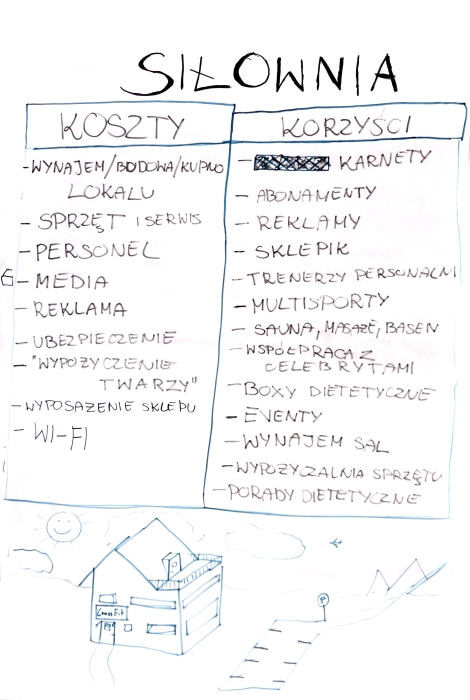 SIŁOWNIA
KOSZTY
- WYNAJEM/BUDOWA/KUPNO
LOKALU
- SPRZĘT I SERWIS
- PERSONEL
- MEDIA
- REKLAMA
- UBEZPIECZENIE
- "WYPOŻYCZENIE
TWARZY"
- WYPOSAŻENIE SKLEPU
- WI-FI
KORZYŚCI
- KARNETY
- ABONAMENTY
- REKLAMY
- SKLEPIK
- TRENERZY PERSONALNI
- MULTISPORTY
- SAUNA, MASAŻE, BASEN
- WSPÓŁPRACA Z
CELEBRYTAMI
- BOXY DIETETYCZNE
- EVENTY
- WYNAJEM SAL
- WYPOŻYCZALNIA SPRZĘTU
- PORADY DIETETYCZNE
CrossFit
P